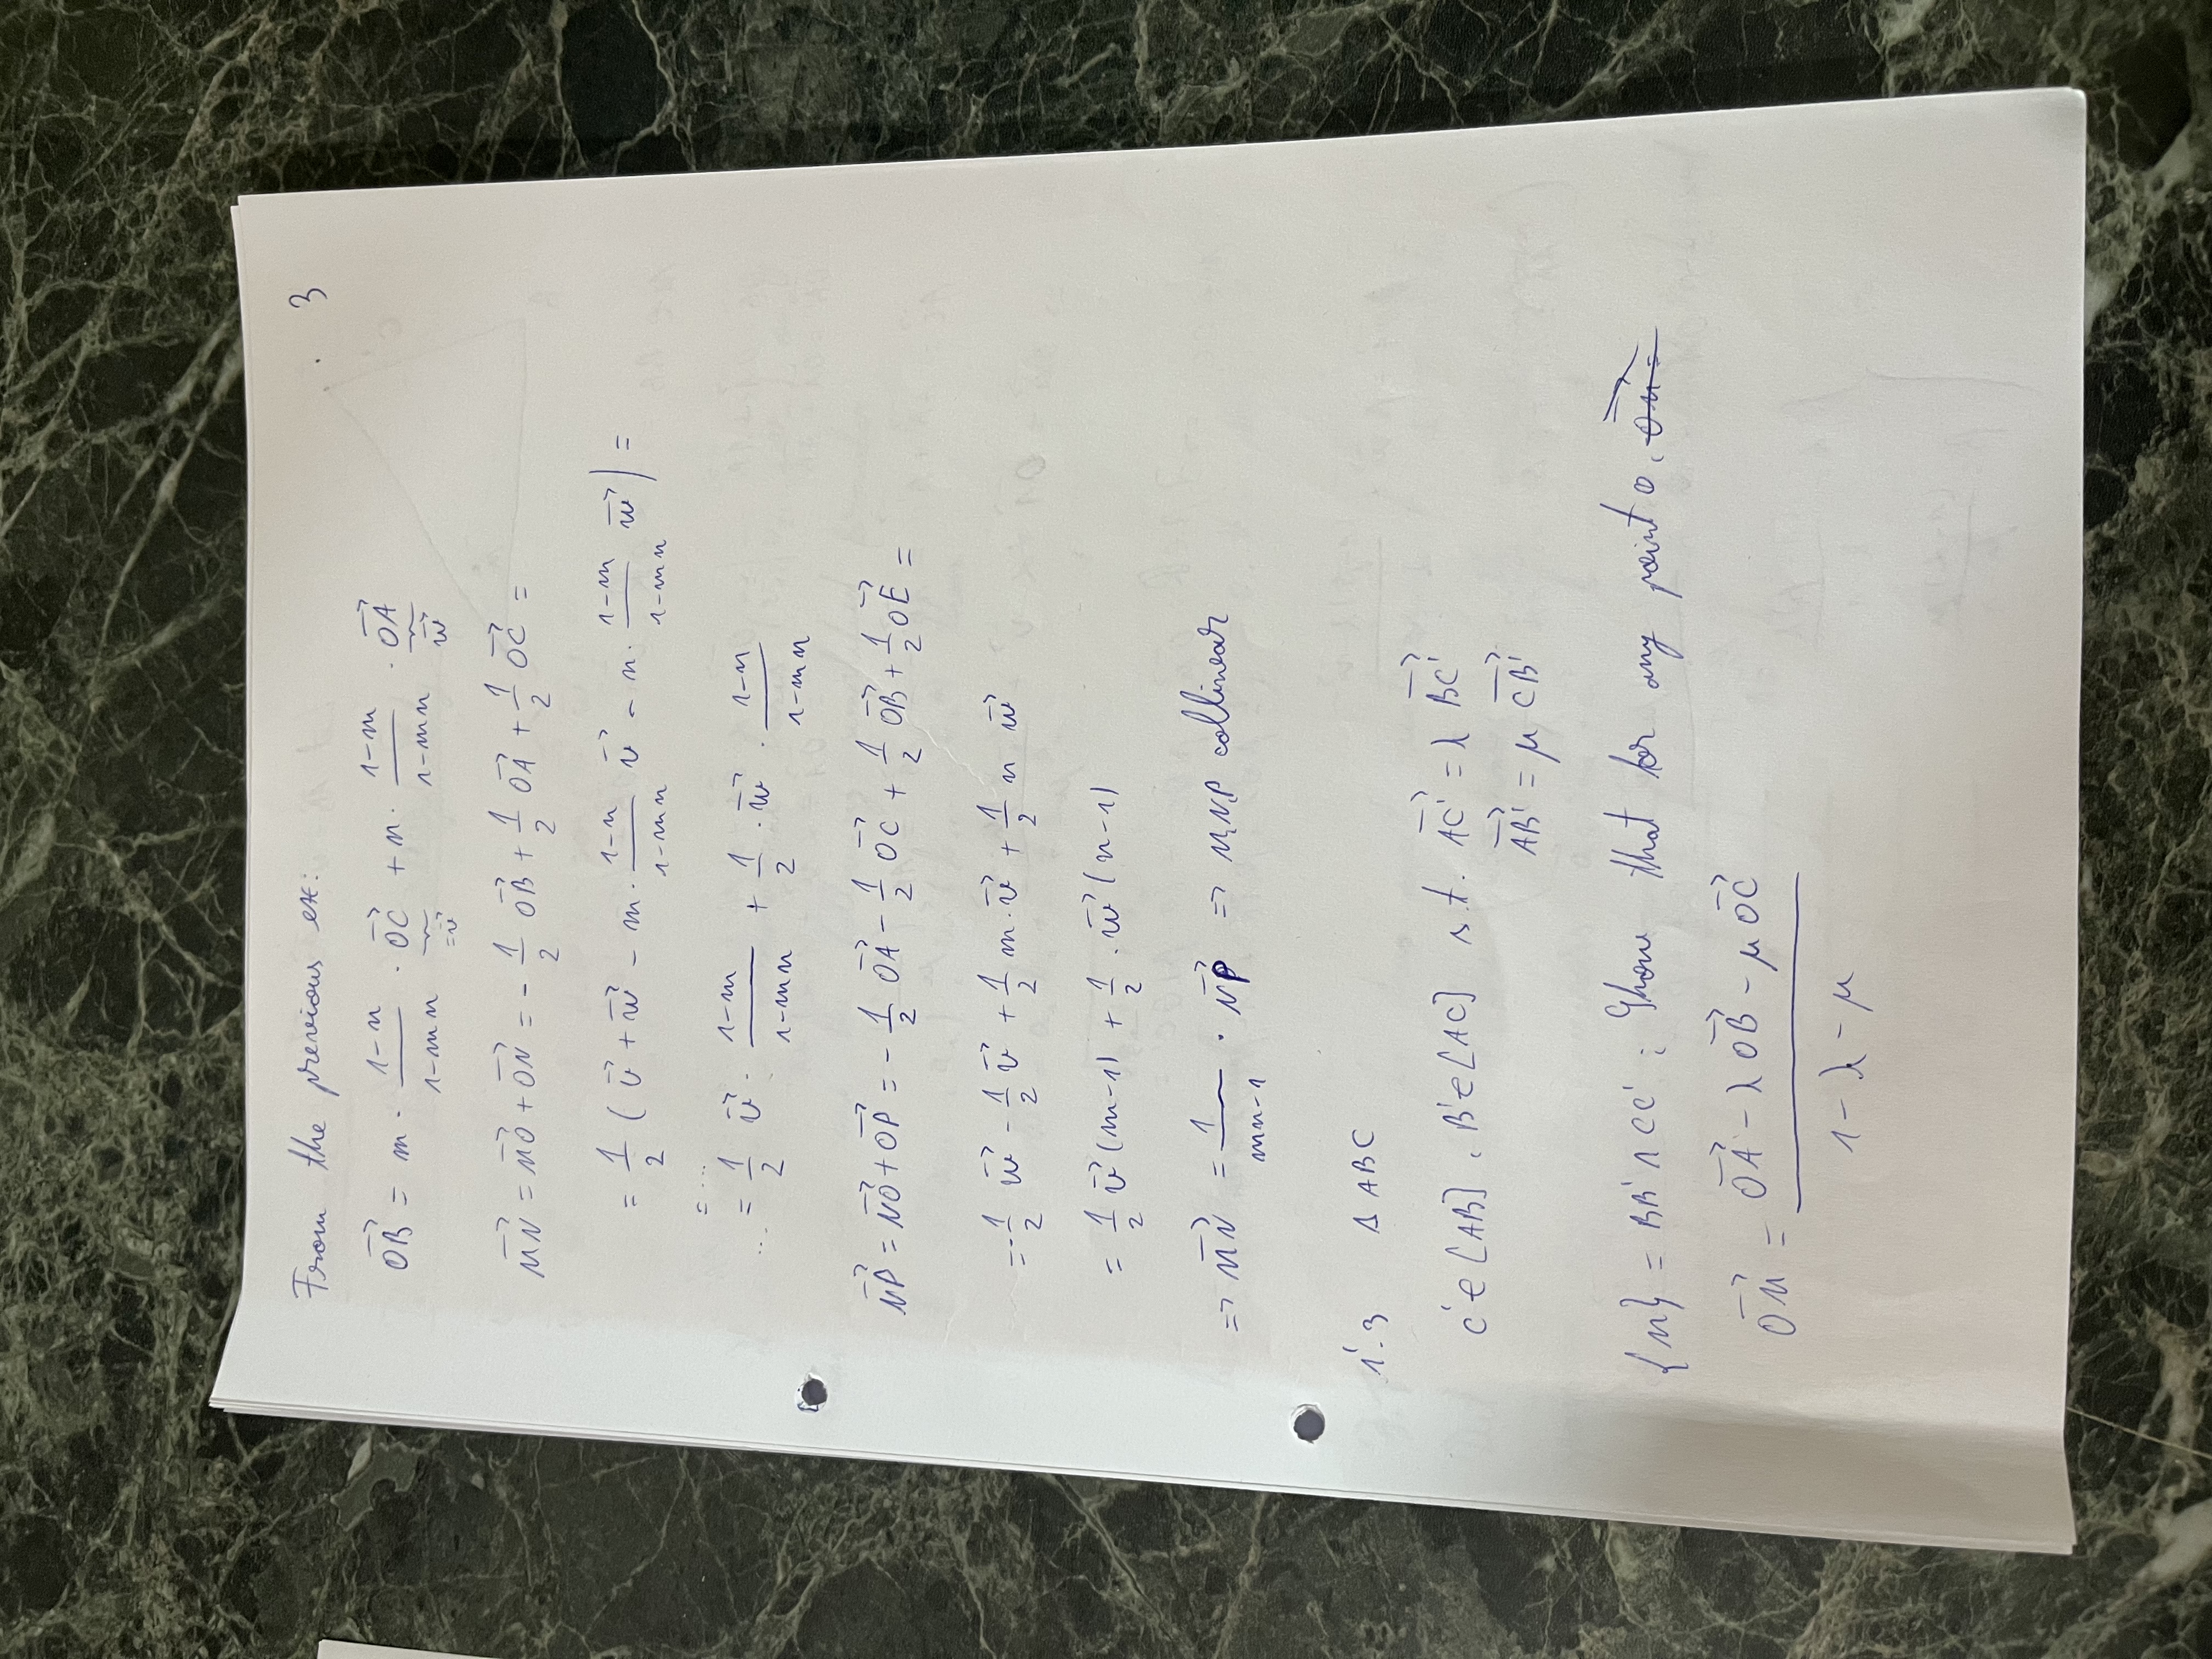 3
From the previous ex:
$\overrightarrow{OB} = m \cdot \frac{1-n}{1-mn} \cdot \underbrace{\overrightarrow{OC}}_{=\vec{v}} + n \cdot \frac{1-m}{1-mn} \cdot \underbrace{\overrightarrow{OA}}_{\vec{w}}$
$\overrightarrow{MN} = \overrightarrow{MO} + \overrightarrow{ON} = -\frac{1}{2} \overrightarrow{OB} + \frac{1}{2} \overrightarrow{OA} + \frac{1}{2} \overrightarrow{OC} =$
$= \frac{1}{2} ( \vec{v} + \vec{w} - m \cdot \frac{1-n}{1-mn} \vec{v} - n \cdot \frac{1-m}{1-mn} \vec{w} ) =$
$= \dots$
$\dots = \frac{1}{2} \vec{v} \cdot \frac{1-m}{1-mn} + \frac{1}{2} \cdot \vec{w} \cdot \frac{1-n}{1-mn}$
$\overrightarrow{NP} = \overrightarrow{NO} + \overrightarrow{OP} = -\frac{1}{2} \overrightarrow{OA} - \frac{1}{2} \overrightarrow{OC} + \frac{1}{2} \overrightarrow{OB} + \frac{1}{2} \overrightarrow{OE} =$
$= -\frac{1}{2} \vec{w} - \frac{1}{2} \vec{v} + \frac{1}{2} m \cdot \vec{v} + \frac{1}{2} n \vec{w}$
$= \frac{1}{2} \vec{v} (m-1) + \frac{1}{2} \cdot \vec{w} (n-1)$
$\Rightarrow \overrightarrow{MN} = \frac{1}{mn-1} \cdot \overrightarrow{NP} \Rightarrow$ M,N,P collinear
1.3 Δ ABC
C' ∈ [AB], B' ∈ [AC] s.t. $\overrightarrow{AC'} = \lambda \overrightarrow{BC'}$
$\overrightarrow{AB'} = \mu \overrightarrow{CB'}$
{M} = BB' ∩ CC' ; Show that for any point O,
$\overrightarrow{OM} = \frac{\overrightarrow{OA} - \lambda \overrightarrow{OB} - \mu \overrightarrow{OC}}{1 - \lambda - \mu}$